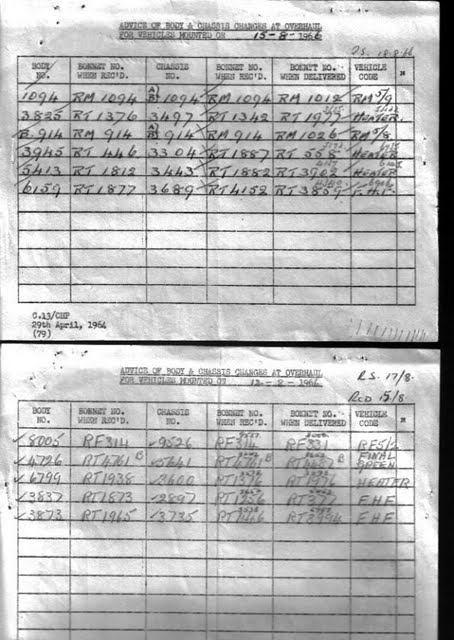 ADVICE OF BODY & CHASSIS CHANGES AT OVERHAUL
FOR VEHICLES MOUNTED ON 15-8-1966
18-8-66
BODY NO. BONNET NO. WHEN REC'D. CHASSIS NO. BONNET NO. WHEN REC'D. BONNET NO. WHEN DELIVERED VEHICLE CODE
1094 RM 1094 A/B 1094 RM 1094 RM 1012 RM 5/9
3825 RT 1376 3497 RT 1342 RT 1977 HEATER
B.914 RM 914 A/B 914 RM 914 RM 1026 RM 5/8
3945 RT 446 3304 RT 1887 RT 558 HEATER
5413 RT 1812 3443 RT 1882 RT 3902 HEATER
6159 RT 1877 3689 RT 4152 RT 3859
C.13/CHP
29th April, 1964
(79)
ADVICE OF BODY & CHASSIS CHANGES AT OVERHAUL
FOR VEHICLES MOUNTED ON 12-8-1966
RS. 17/8.
RCD 15/8
BODY NO. BONNET NO. WHEN REC'D. CHASSIS NO. BONNET NO. WHEN REC'D. BONNET NO. WHEN DELIVERED VEHICLE CODE
8005 RF314 9526 RF314 RF331 RF5/2
4726 RT4761 B 5641 FINAL GREEN
6799 RT1938 3600 RT1376 HEATER
3837 RT1873 2897 RT1556 FHF
3873 RT1965 3735 RT3994 FHF